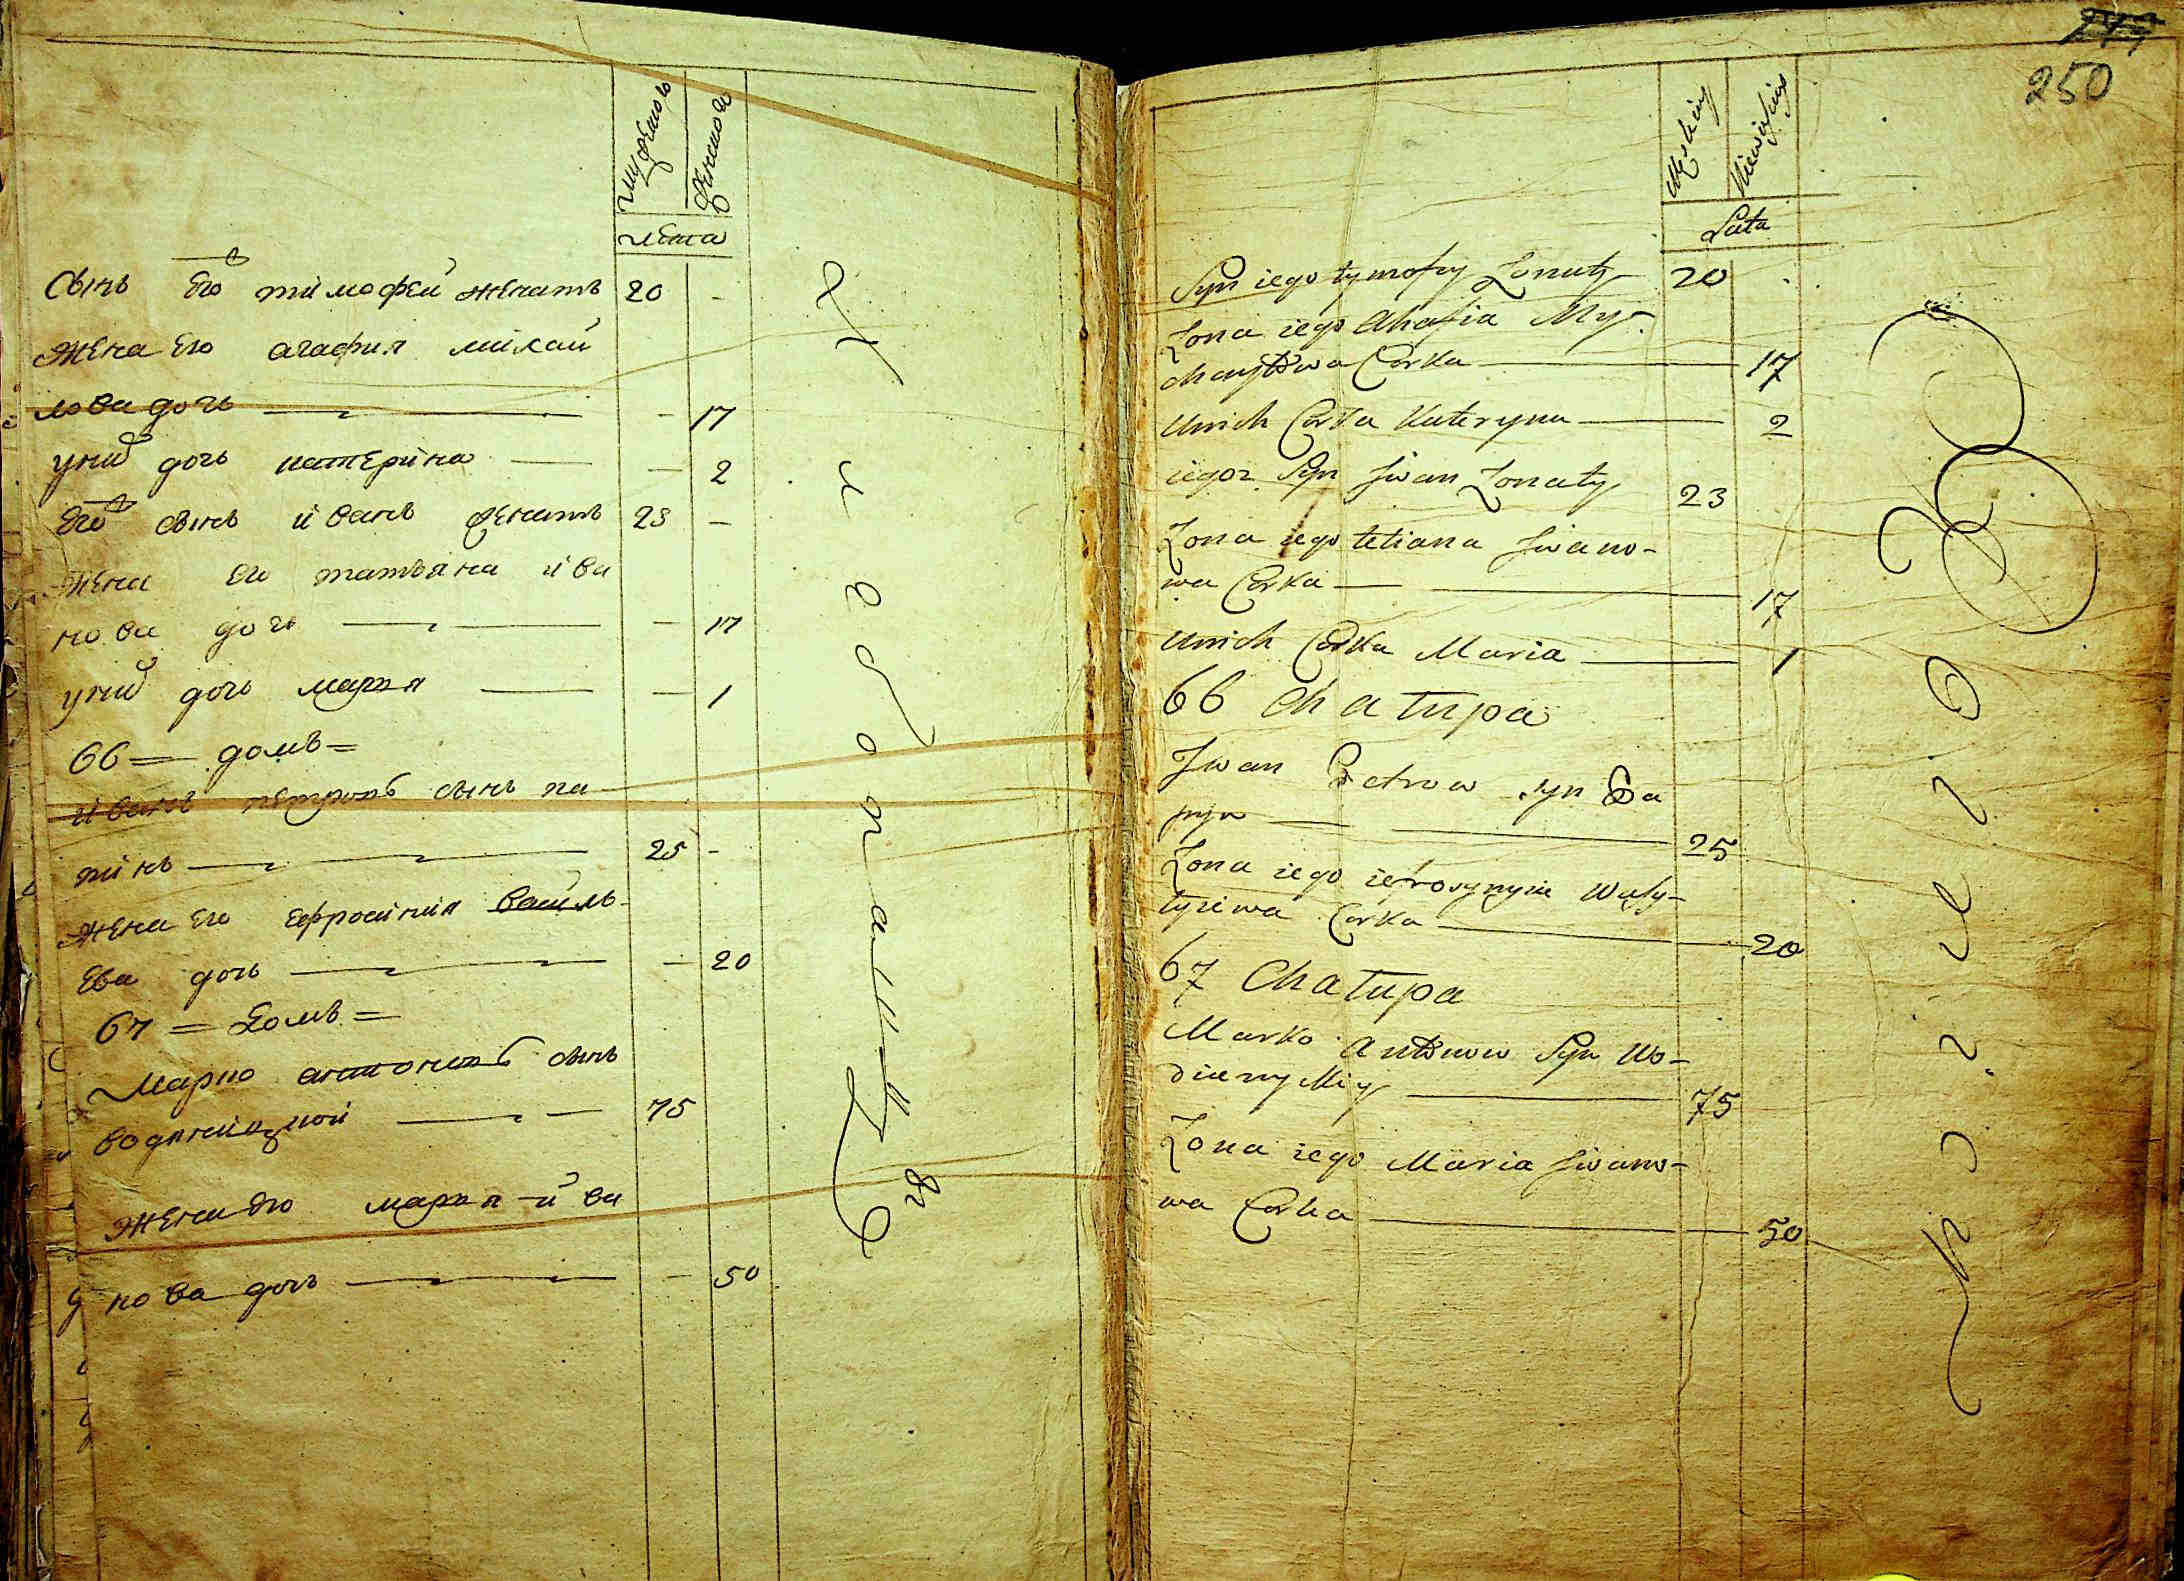 мужеска
женска
лѣта
Сынъ его тимофей женатъ 20 -
жена его агафия михай
лова дочь - 17
у них дочь катерина - 2
его сынъ иванъ женатъ 23 -
жена его татьяна ива
нова дочь - 17
у них дочь мария - 1
66 = домъ =
иванъ петровъ сынъ па
пинъ 25 -
жена его ефросиния василь
ева дочь - 20
67 = Домъ =
Марко антоновъ сынъ
водяницкой 75
жена его мария ива
нова дочь - 50
250
Męskiey
Niewieściey
Lata
Syn iego tymofey Żonaty 20
Żona iego Ahafia My-
chayłowa Corka 17
Unich Corka Kateryna 2
iegoz Syn Jwan Żonaty 23
Żona iego tetiana Jwano-
wa Corka 17
Unich Corka Maria 1
66 Chałupa
Jwan Petrow syn Pa
pyn 25
Żona iego iefrosynyia Wasy-
lyiewa Corka 20
67 Chałupa
Marko Antonow Syn Wo-
dianyckiy 75
Żona iego Maria Jwano-
wa Corka 50